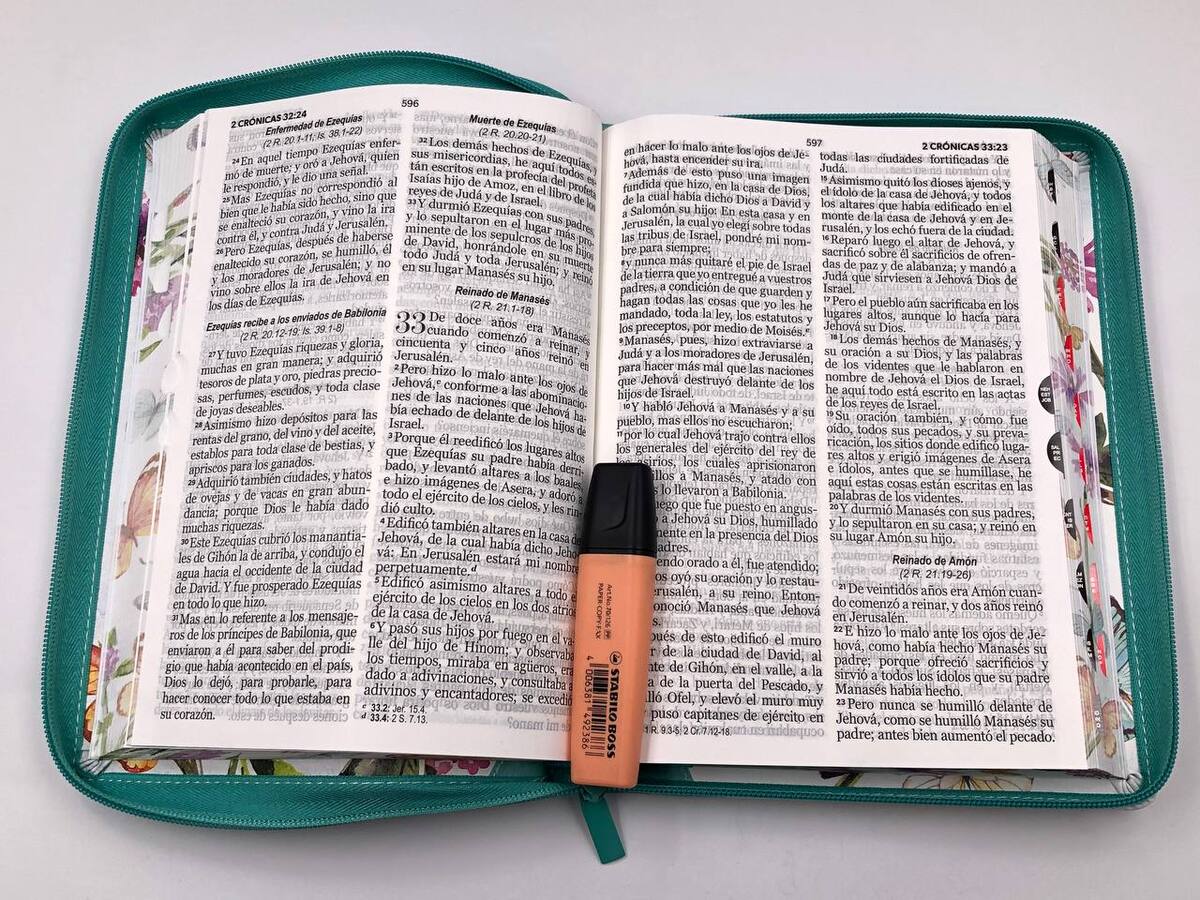 2 CRÓNICAS 32:24
596
Enfermedad de Ezequías
(2 R. 20.1-11; Is. 38.1-22)
24 En aquel tiempo Ezequías enfer-
mó de muerte; y oró a Jehová, quien
le respondió, y le dio una señal.
25 Mas Ezequías no correspondió al
bien que le había sido hecho, sino que
se enalteció su corazón, y vino la ira
contra él, y contra Judá y Jerusalén.
26 Pero Ezequías, después de haberse
enaltecido su corazón, se humilló, él
y los moradores de Jerusalén; y no
vino sobre ellos la ira de Jehová en
los días de Ezequías.
Ezequías recibe a los enviados de Babilonia
(2 R. 20.12-19; Is. 39.1-8)
27 Y tuvo Ezequías riquezas y gloria,
muchas en gran manera; y adquirió
tesoros de plata y oro, piedras precio-
sas, perfumes, escudos, y toda clase
de joyas deseables.
28 Asimismo hizo depósitos para las
rentas del grano, del vino y del aceite,
establos para toda clase de bestias, y
apriscos para los ganados.
29 Adquirió también ciudades, y hatos
de ovejas y de vacas en gran abun-
dancia; porque Dios le había dado
muchas riquezas.
30 Este Ezequías cubrió los manantia-
les de Gihón la de arriba, y condujo el
agua hacia el occidente de la ciudad
de David. Y fue prosperado Ezequías
en todo lo que hizo.
31 Mas en lo referente a los mensaje-
ros de los príncipes de Babilonia, que
enviaron a él para saber del prodi-
gio que había acontecido en el país,
Dios lo dejó, para probarle, para
hacer conocer todo lo que estaba en
su corazón.
Muerte de Ezequías
(2 R. 20.20-21)
32 Los demás hechos de Ezequías, y
sus misericordias, he aquí todos es-
tán escritos en la profecía del profeta
Isaías hijo de Amoz, en el libro de los
reyes de Judá y de Israel.
33 Y durmió Ezequías con sus padres,
y lo sepultaron en el lugar más pro-
minente de los sepulcros de los hijos
de David, honrándole en su muerte
todo Judá y toda Jerusalén; y reinó
en su lugar Manasés su hijo.
Reinado de Manasés
(2 R. 21.1-18)
33 De doce años era Manasés
cuando comenzó a reinar, y
cincuenta y cinco años reinó en
Jerusalén.
2 Pero hizo lo malo ante los ojos de
Jehová, c conforme a las abominacio-
nes de las naciones que Jehová ha-
bía echado de delante de los hijos de
Israel.
3 Porque él reedificó los lugares altos
que Ezequías su padre había derri-
bado, y levantó altares a los baales,
e hizo imágenes de Asera, y adoró a
todo el ejército de los cielos, y les rin-
dió culto.
4 Edificó también altares en la casa de
Jehová, de la cual había dicho Jehová:
En Jerusalén estará mi nombre
perpetuamente. d
5 Edificó asimismo altares a todo el
ejército de los cielos en los dos atrios
de la casa de Jehová.
6 Y pasó sus hijos por fuego en el va-
lle del hijo de Hinom; y observaba
los tiempos, miraba en agüeros, era
dado a adivinaciones, y consultaba a
adivinos y encantadores; se excedió
c 33.2: Jer. 15.4.
d 33.4: 2 S. 7.13.
597
2 CRÓNICAS 33:23
en hacer lo malo ante los ojos de Je-
hová, hasta encender su ira.
7 Además de esto puso una imagen
fundida que hizo, en la casa de Dios,
de la cual había dicho Dios a David y
a Salomón su hijo: En esta casa y en
Jerusalén, la cual yo elegí sobre todas
las tribus de Israel, pondré mi nom-
bre para siempre;
8 y nunca más quitaré el pie de Israel
de la tierra que yo entregué a vuestros
padres, a condición de que guarden y
hagan todas las cosas que yo les he
mandado, toda la ley, los estatutos y
los preceptos, por medio de Moisés. e
9 Manasés, pues, hizo extraviarse a
Judá y a los moradores de Jerusalén,
para hacer más mal que las naciones
que Jehová destruyó delante de los
hijos de Israel.
10 Y habló Jehová a Manasés y a su
pueblo, mas ellos no escucharon;
11 por lo cual Jehová trajo contra ellos
los generales del ejército del rey de
los asirios, los cuales aprisionaron
llos a Manasés, y atado con
s lo llevaron a Babilonia.
ego que fue puesto en angus-
a Jehová su Dios, humillado
ente en la presencia del Dios
adres.
endo orado a él, fue atendido;
os oyó su oración y lo restau-
rusalén, a su reino. Enton-
onoció Manasés que Jehová
s.
pués de esto edificó el muro
r de la ciudad de David, al
nte de Gihón, en el valle, a la
a de la puerta del Pescado, y
lló Ofel, y elevó el muro muy
puso capitanes de ejército en
1 R. 9.3-5; 2 Cr. 7.12-18.
todas las ciudades fortificadas de
Judá.
15 Asimismo quitó los dioses ajenos, y
el ídolo de la casa de Jehová, y todos
los altares que había edificado en el
monte de la casa de Jehová y en Je-
rusalén, y los echó fuera de la ciudad.
16 Reparó luego el altar de Jehová, y
sacrificó sobre él sacrificios de ofren-
das de paz y de alabanza; y mandó a
Judá que sirviesen a Jehová Dios de
Israel.
17 Pero el pueblo aún sacrificaba en los
lugares altos, aunque lo hacía para
Jehová su Dios.
18 Los demás hechos de Manasés, y
su oración a su Dios, y las palabras
de los videntes que le hablaron en
nombre de Jehová el Dios de Israel,
he aquí todo está escrito en las actas
de los reyes de Israel.
19 Su oración también, y cómo fue
oído, todos sus pecados, y su preva-
ricación, los sitios donde edificó luga-
res altos y erigió imágenes de Asera
e ídolos, antes que se humillase, he
aquí estas cosas están escritas en las
palabras de los videntes.
20 Y durmió Manasés con sus padres,
y lo sepultaron en su casa; y reinó en
su lugar Amón su hijo.
Reinado de Amón
(2 R. 21.19-26)
21 De veintidós años era Amón cuan-
do comenzó a reinar, y dos años reinó
en Jerusalén.
22 E hizo lo malo ante los ojos de Je-
hová, como había hecho Manasés su
padre; porque ofreció sacrificios y
sirvió a todos los ídolos que su padre
Manasés había hecho.
23 Pero nunca se humilló delante de
Jehová, como se humilló Manasés su
padre; antes bien aumentó el pecado.
NEH
EST
JOB
Art.No.70/126
PAPER-COPY-FAX
STABILO BOSS
4 006381 492386